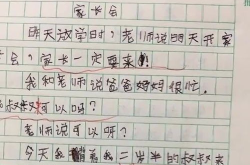 家长会
明天放学时,老师说明天开家
会,家长一定要来
我和老师说爸爸妈妈很忙。
叔叔可以呀?
老师说可以呀?
今天我 我二岁半的叔叔来